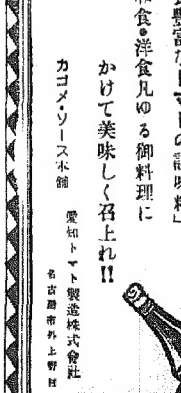 豊富なトマトの調味料」
和食・洋食凡ゆる御料理に
かけて美味しく召上れ!!
カゴメ・ソース本舗
愛知トマト製造株式會社
名古屋市外上野町